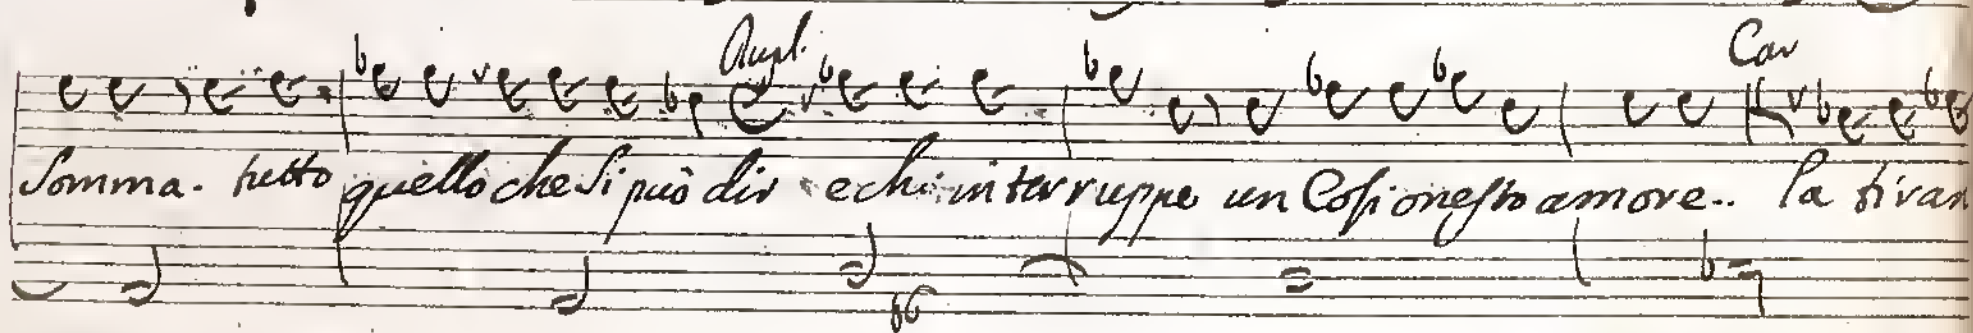 Car
Somma. tutto quello che si può dir e chi interruppe un Cosi onesto amore.. la tiran